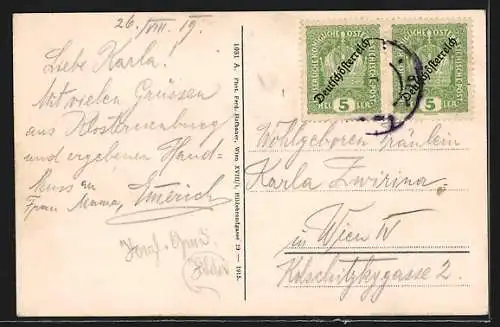 26./VIII. 19.
Liebe Karla.
Mit vielen Grüssen
aus Klosterneuburg
und ergebenen Hand-
kuss an
Frau Mama, Emerich
1031 A. Phot. Ferd. Hofbauer, Wien XVIII/1, Hildebrandgasse 23 — 1915.
KAISERLICHE KÖNIGLICHE ÖSTERR. POST
Deutschösterreich
HELLER 5
Deutschösterreich
5 LLER
Wohlgeboren Fräulein
Karla Zwirina.
in Wien IV
Kolschitzkygasse 2.